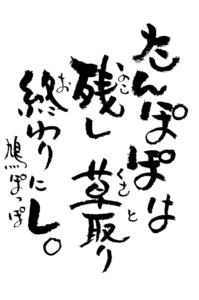 たんぽぽは
残し草取り
終わりにし。
鳩ぽっぽ
のこ
くさ
と
お